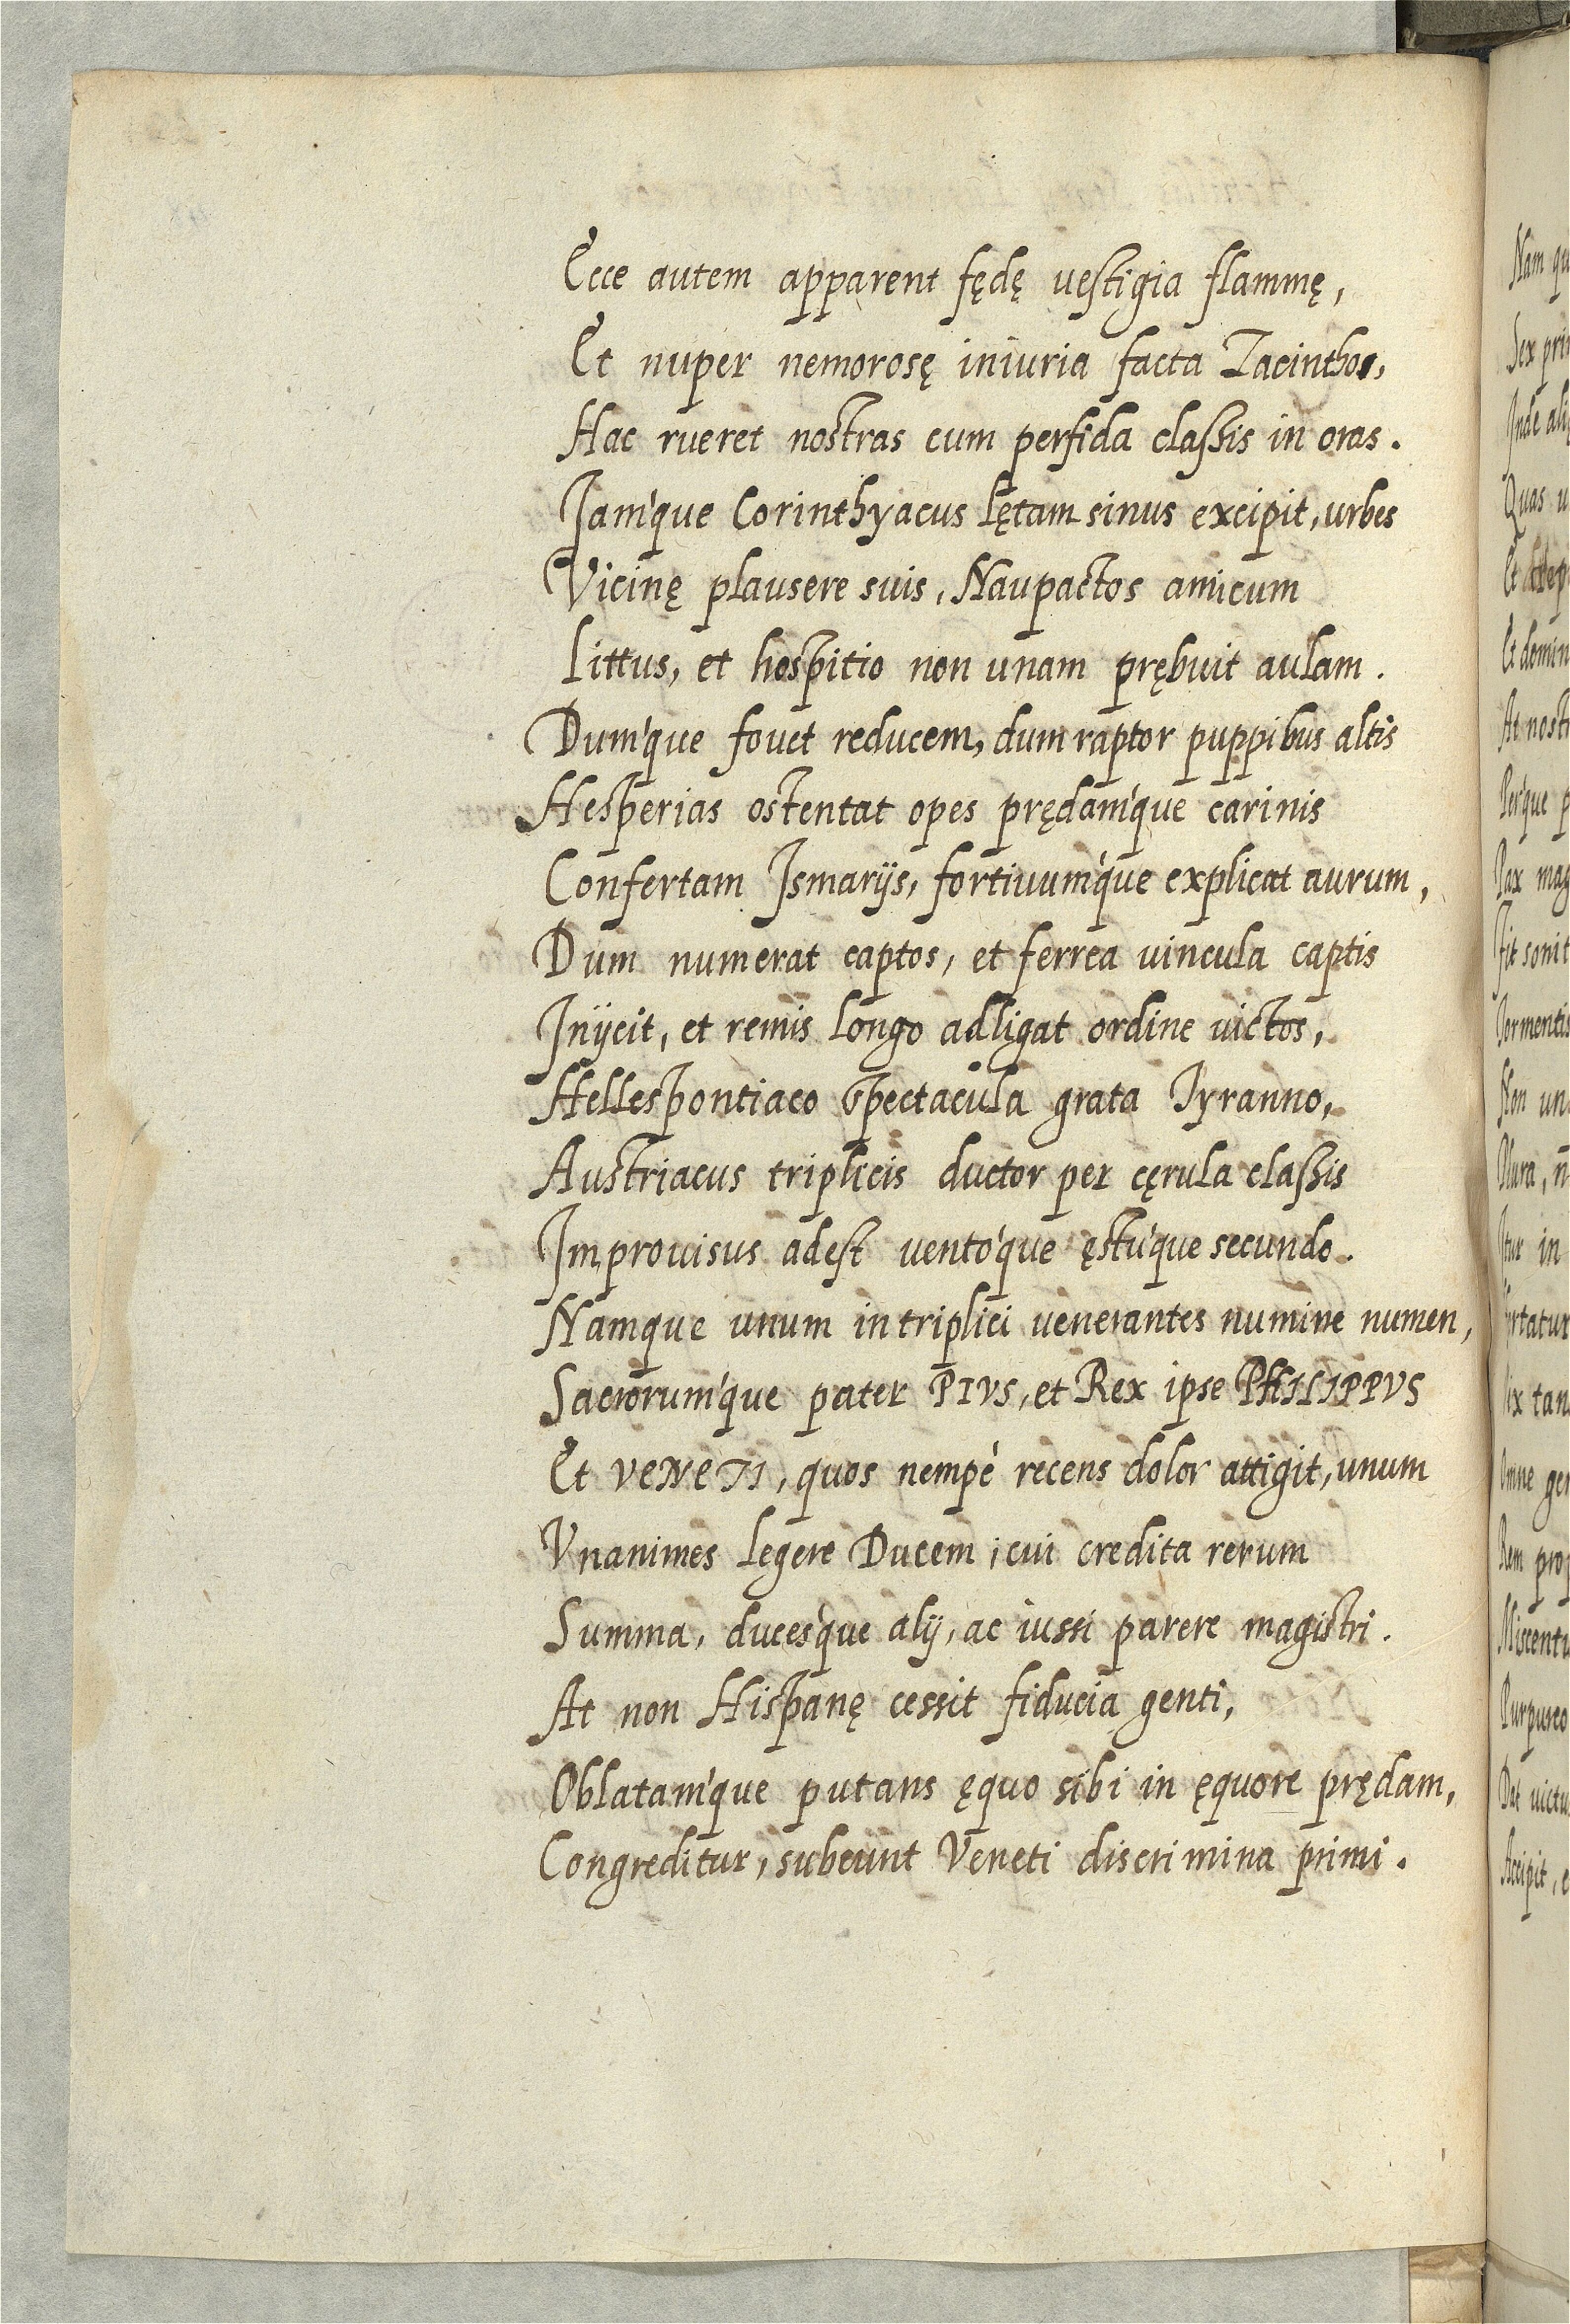 Ecce autem apparent fędę vestigia flammę,
Et nuper nemorosę iniuria facta Zacinthos,
Hac rueret nostras cum perfida classis in oras.
Jam'que Corinthyacus lętam sinus excipit, urbes
Vicinę plausere suis, Naupactos amicum
Littus, et hospitio non unam prębuit aulam.
Dum'que fouet reducem, dum raptor puppibus altis
Hesperias ostentat opes prędam'que carinis
Confertam Ismarijs, fortiuum'que explicat aurum,
Dum numerat captos, et ferrea vincula captis
Inijcit, et remis longo adligat ordine victos,
Hellespontiaco spectacula grata Tyranno,
Austriacus triplicis ductor per cęrula classis
Improuisus adest vento'que ęstu'que secundo.
Namque unum in triplici venerantes numine numen,
Sacrorum'que pater PIVS, et Rex ipse PHILIPPVS
Et VENETI, quos nempè recens dolor attigit, unum
Vnanimes legere Ducem; cui credita rerum
Summa, duces'que alij, ac iussi parere magistri.
At non Hispanę cessit fiducia genti,
Oblatam'que putans ęquo sibi in ęquore prędam,
Congreditur, subeunt Veneti discrimina primi.
Nam
Sex
Inde
Quas
Et
Et
At
Per'que
Pax
Fit
Tormentis
Non
in